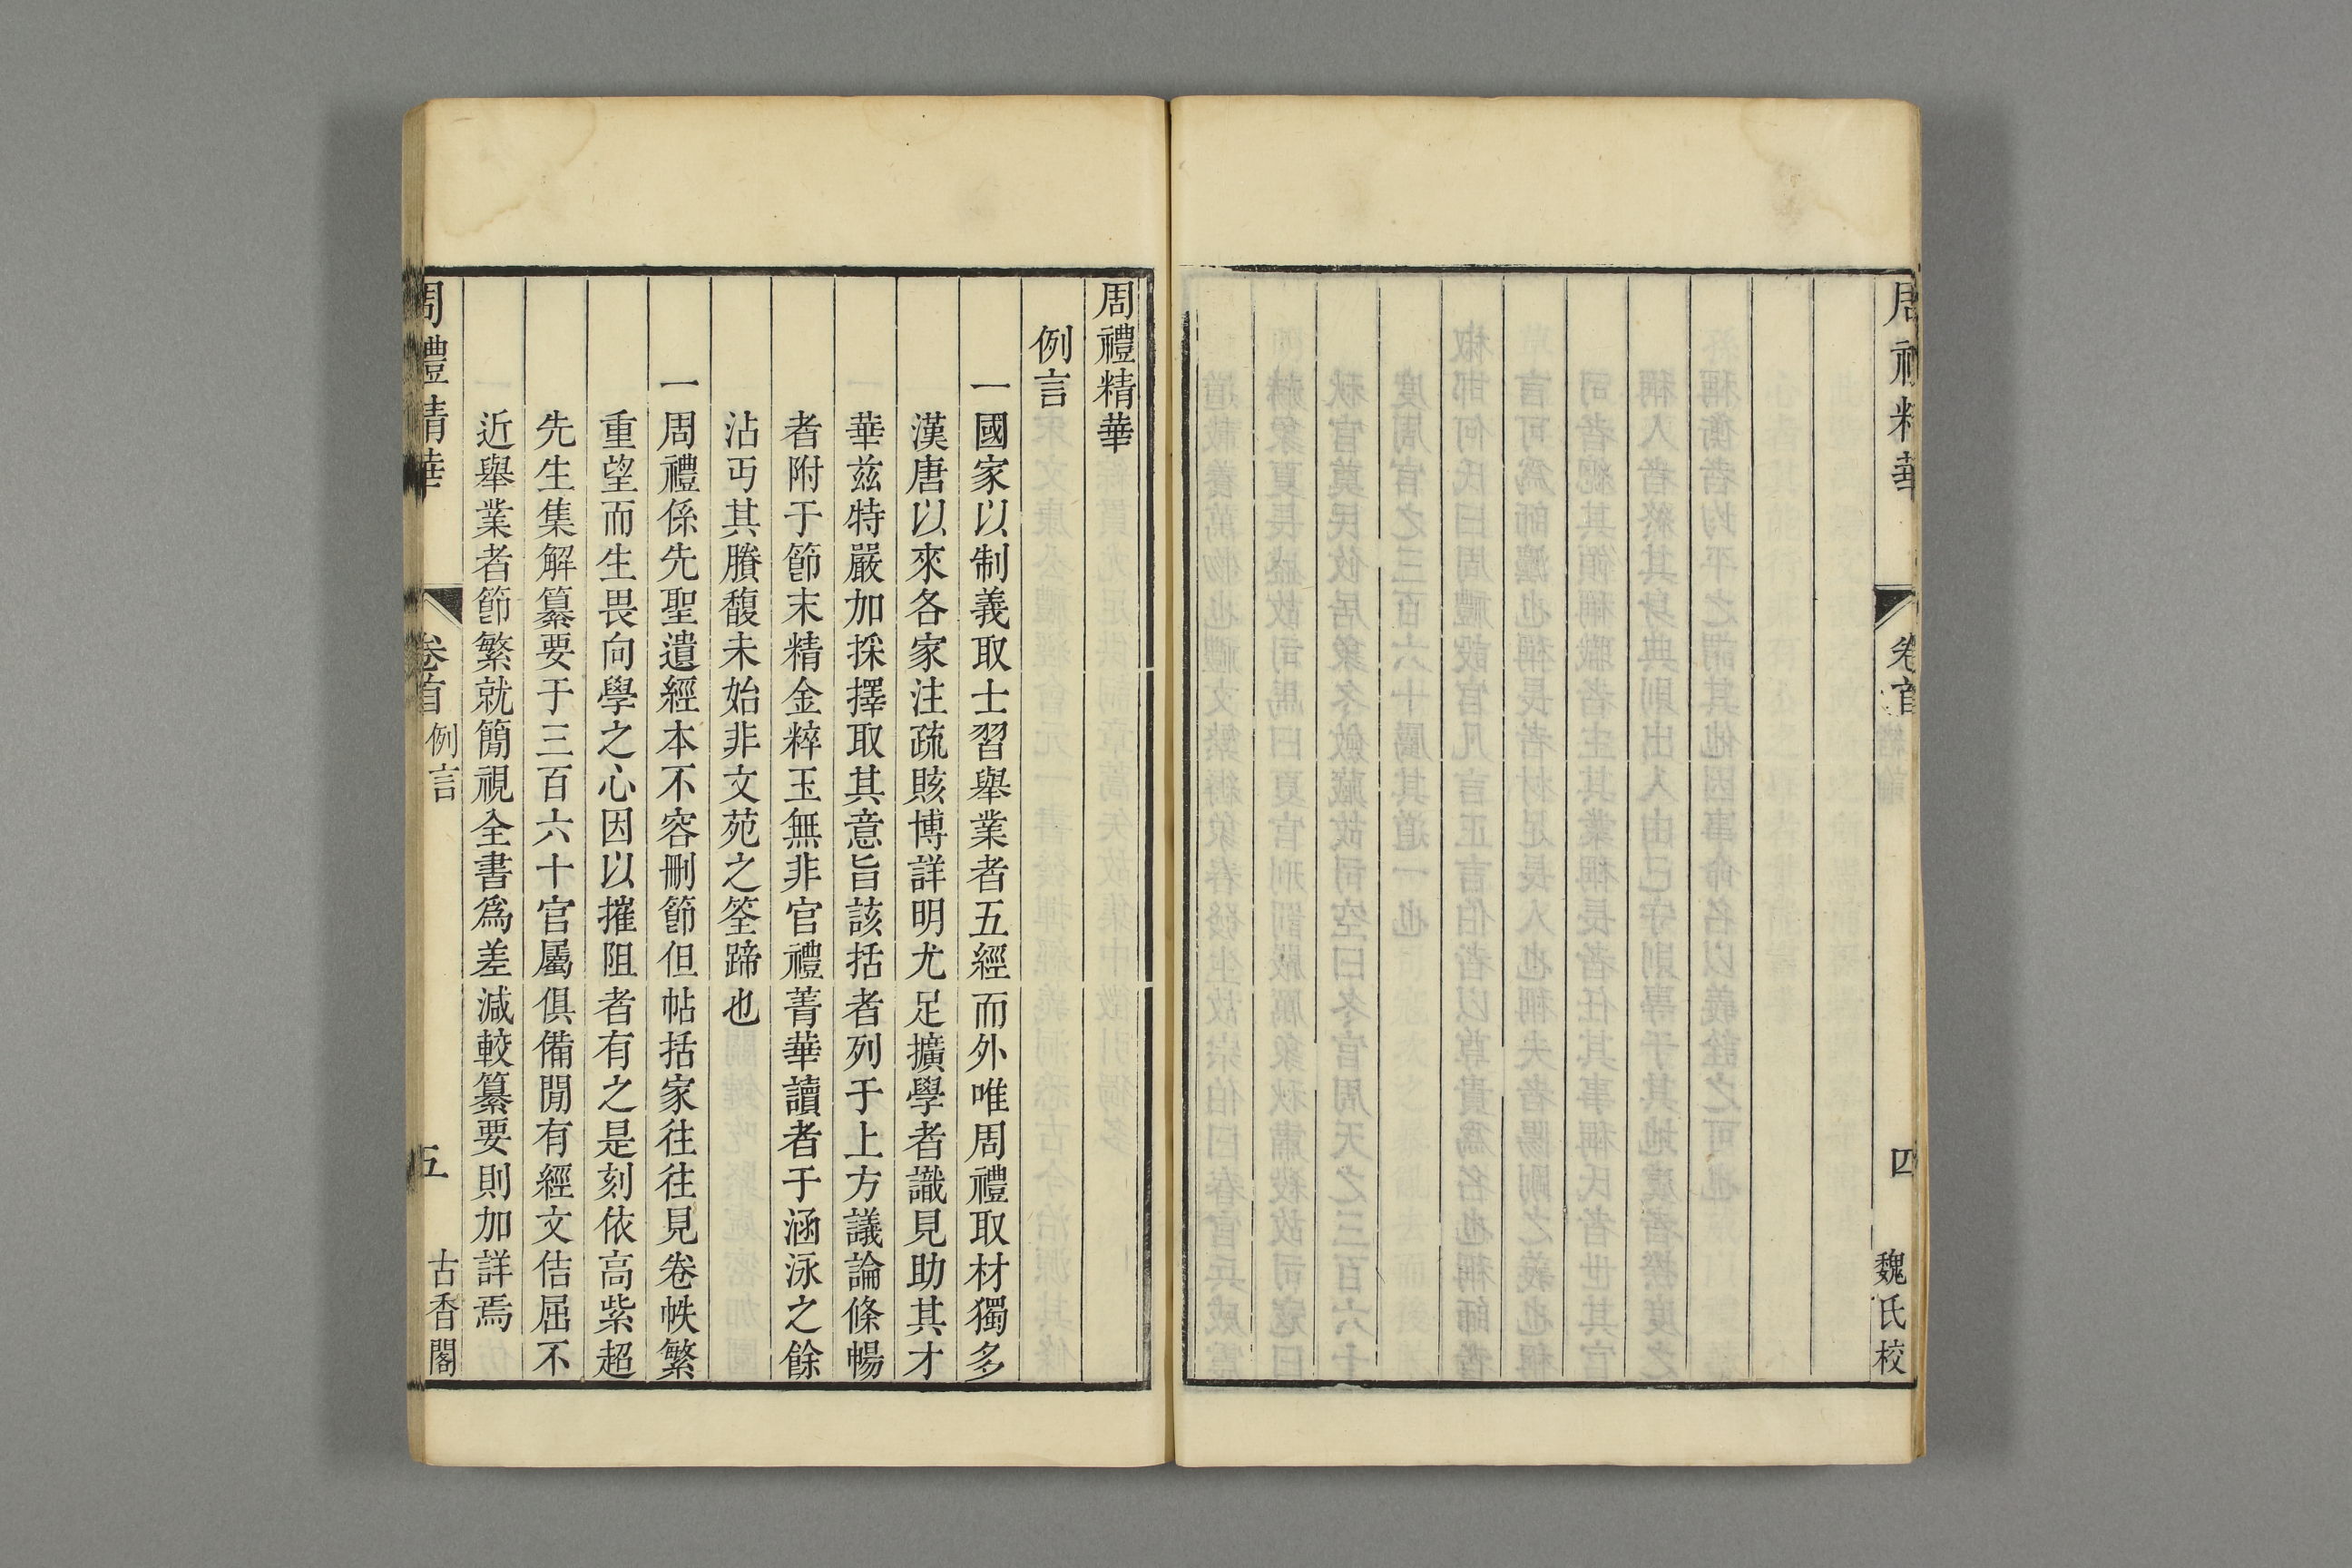 周禮精華
卷首
四
魏氏校
周禮精華
例言
一國家以制義取士習舉業者五經而外唯周禮取材獨多
漢唐以來各家注疏賅博詳明尤足擴學者識見助其才
華兹特嚴加採擇取其意旨該括者列于上方議論條暢
者附于節末精金粹玉無非官禮菁華讀者于涵泳之餘
沾丏其賸馥未始非文苑之筌蹄也
一周禮係先聖遺經本不容刪節但帖括家往往見卷帙繁
重望而生畏向學之心因以摧阻者有之是刻依高紫超
先生集解纂要于三百六十官屬俱備閒有經文佶屈不
近舉業者節繁就簡視全書爲差減較纂要則加詳焉
周禮精華
卷首
例言
五
古香閣